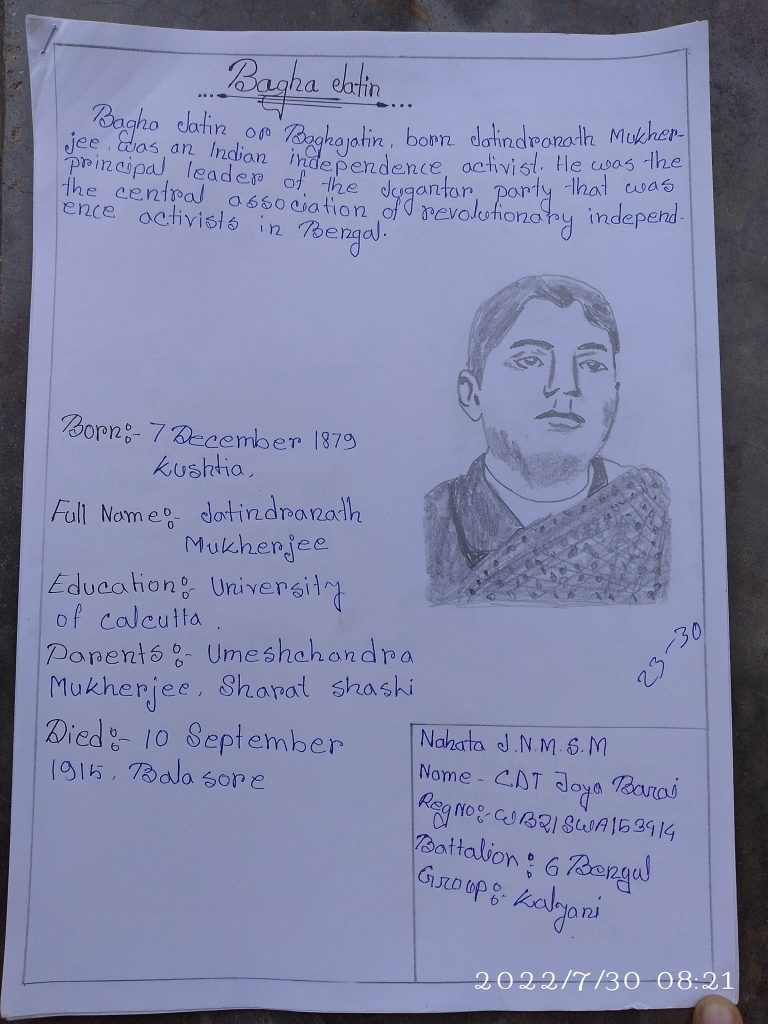 Bagha Jatin
Bagha Jatin or Baghajatin, born Jatindranath Mukher-
jee, was an Indian independence activist. He was the
principal leader of the Jugantar party that was
the central association of revolutionary independ-
ence activists in Bengal.
Born:- 7 December 1879
Kushtia,
Full Name:- Jatindranath
Mukherjee
Education:- University
of Calcutta.
Parents:- Umeshchandra
Mukherjee, Sharat Shashi
Died:- 10 September
1915, Balasore
23-30
Nahata J.N.M.S.M
Name - CDT Joya Barai
Reg No:- WB21SWA153914
Battalion: 6 Bengal
Group: Kalyani
2022/7/30 08:21